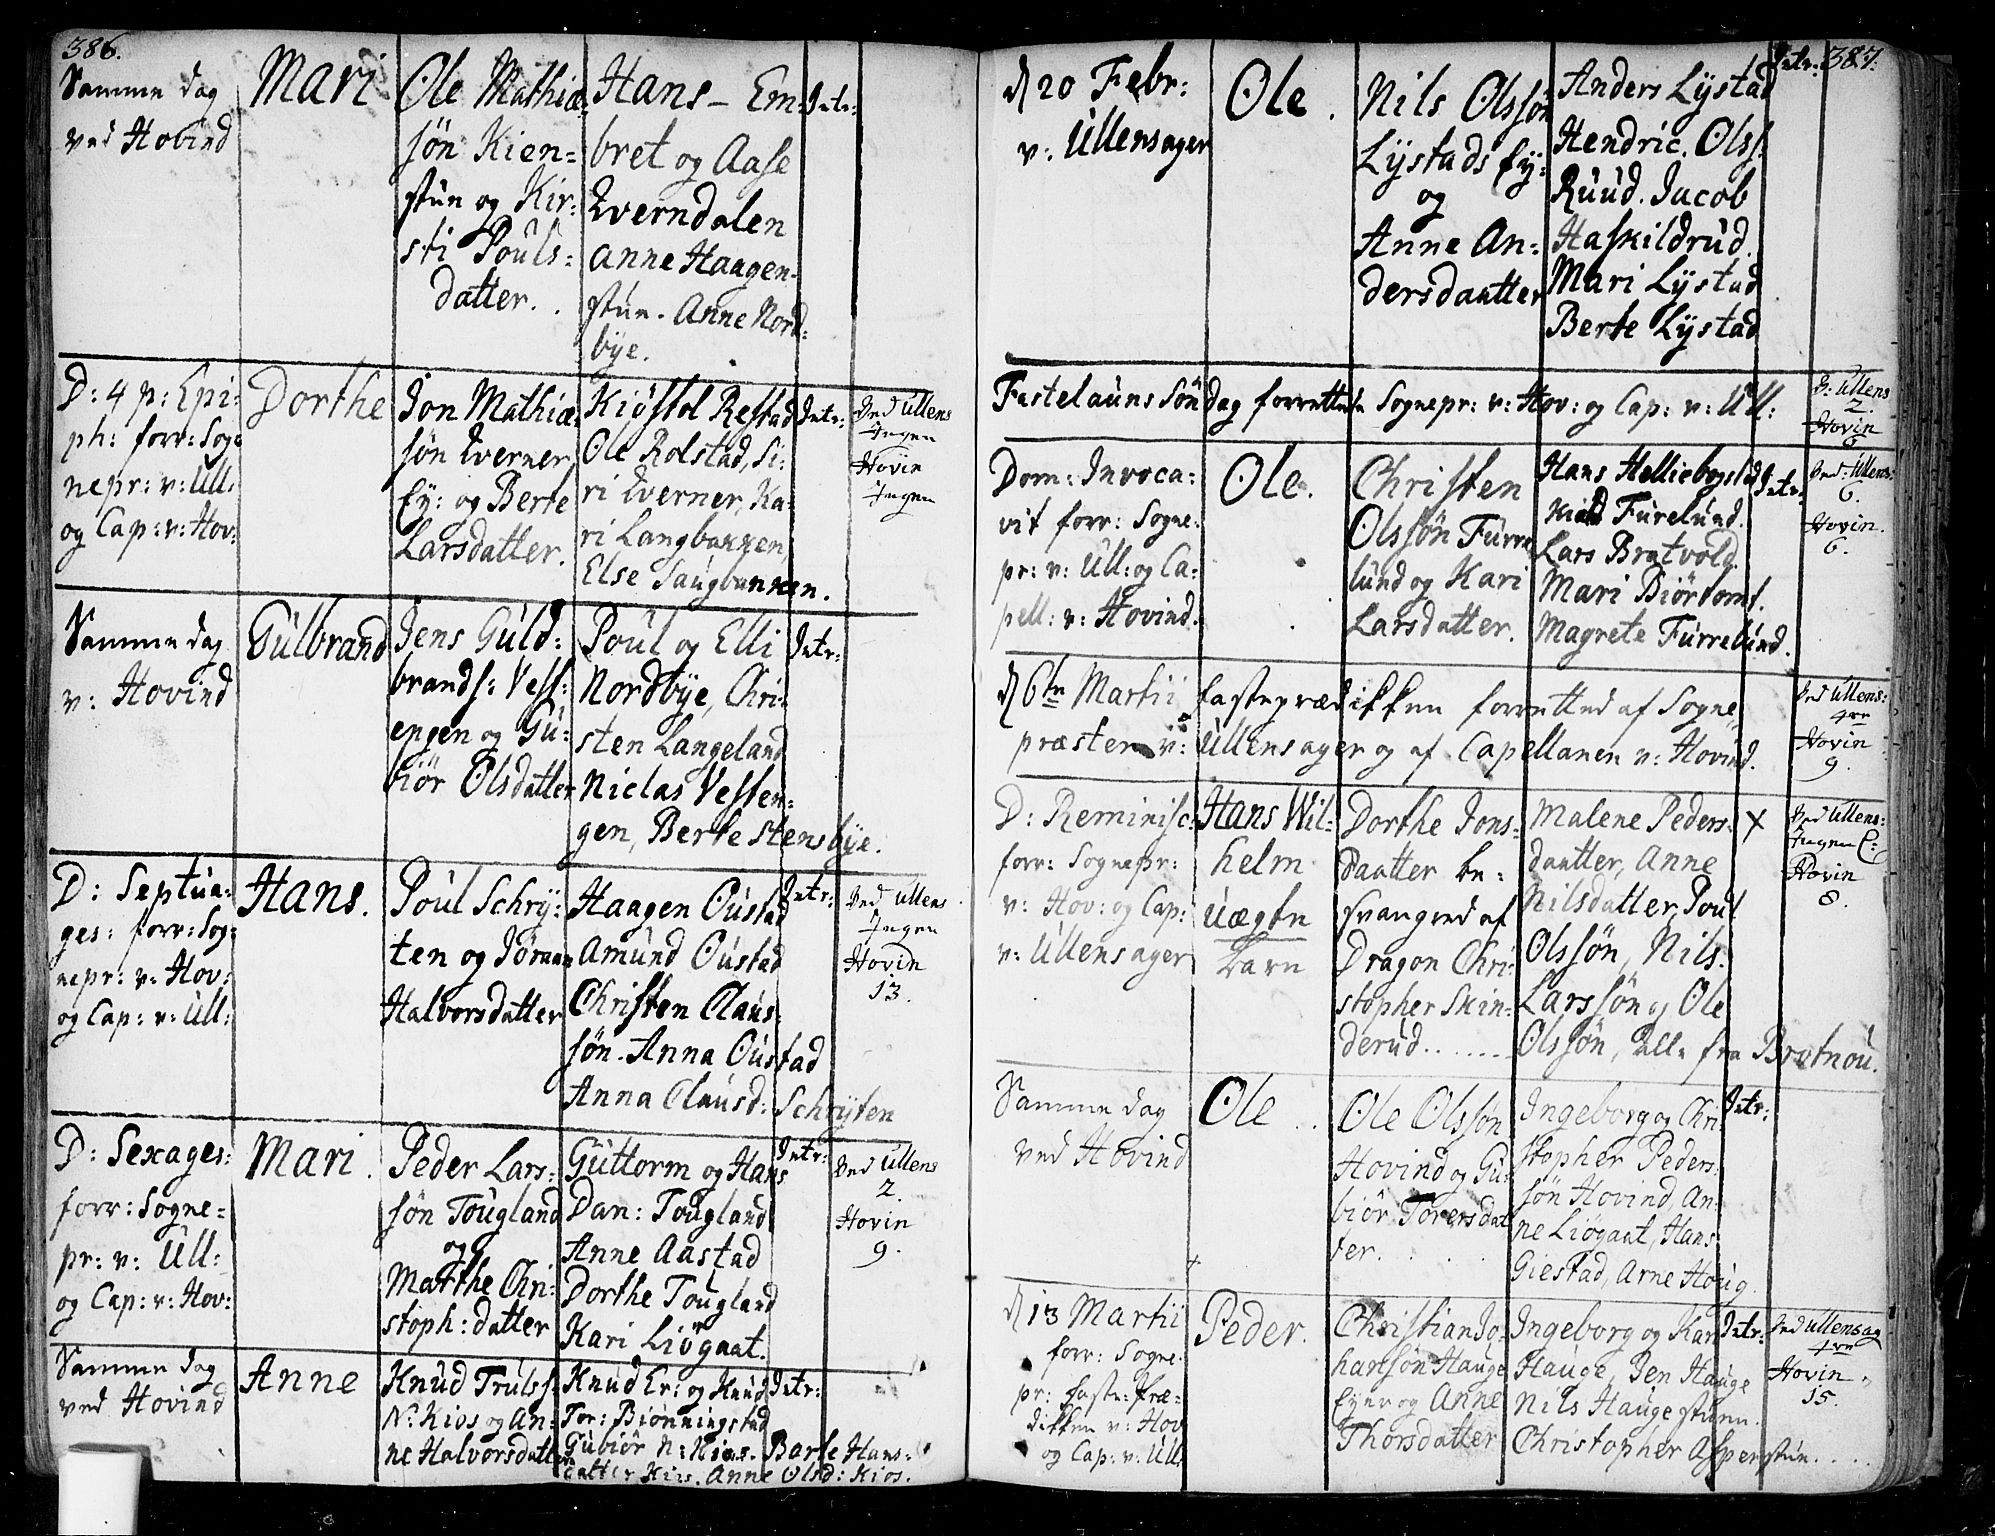 386.
Samme dag
ved Hovind
Mari
Ole Mathiæ-
sön Kien=
stun og Kir:
sti Pouls=
datter.
Hans - Em-
bret og Aase
Qverndalen
Anne Haagen-
stun. Anne Nord-
bye.
Intr:
D: 4 p: Epi-
ph: forr: Sog-
nepr: v: Ull:
og Cap: v: Hov:
Dorthe
Jon Mathiæ-
sön Qverner
Ey: og Berte
Larsdatter.
Kiöstol Restad
Ole Rolstad, Si-
ri Qverner, Ka-
ri Langbakken
Else Saugbanken.
Intr:
Ved Ullens
Ingen
Hovin
Ingen
Samme dag
v: Hovind
Gulbrand
Jens Guld-
brands: Vess-
engen og Gu-
biör Olsdatter
Poul og Elli
Nordbye, Chri-
sten Langeland
Niclas Vessen-
gen, Berte Stensbye.
Intr:
D: Septua-
ges: forr: Sog-
nepr: v: Hov:
og Cap: v: Ull:
Hans.
Poul Schry-
ten og Jöraan
Halvorsdatter
Haagen Oustad
Amund Oustad
Christen Claus-
sön. Anna Oustad
Anna Clausd: Schryten
Intr:
Ved Ullens
Ingen
Hovin
13.
D: Sexages:
forr: Sogne-
pr: v: Ull:
og Cap: v: Hov:
Mari.
Peder Lars-
sön Tougland
og
Marthe Chri-
stoph: datter
Guttorm og Hans
Dan: Tougland
Anne Aastad
Dorthe Tougland
Kari Liögaat.
Intr:
Ved Ullens
2.
Hovin
9.
Samme dag
ved Hovind
Anne
Knud Truls:
N: Kios og An-
ne Halvorsdatter
Knud Er: og Knud
Tor: Biönningstad
Gubiör N: Kios. Barte Hans-
datter Kios. Anne Olsd: Kios.
Intr:
387.
d 20 Febr:
v: Ullensager
Ole.
Nils Olssön
Lystads Ey:
og
Anne An-
dersdaatter
Anders Lystad
Hendric. Olss.
Ruud. Jacob
Haskildrud.
Mari Lystad
Berte Lystad
Intr:
Fastelauns Söndag forrettede Sognepr: v: Hov: og Cap: v: Ull:
V: Ullens
2.
Hovin
6
Dom: Invoca-
vit forr: Sogne-
pr: v: Ull: og Ca-
pell: v: Hovind.
Ole.
Christen
Olssön Furre-
lund og Kari
Larsdatter.
Hans Helliebogstad
Furelund.
Lars Bratvold
Mari Biörtomt.
Magrete Furrelund.
Intr.
Ved: Ullens:
6.
Hovin.
6.
d 6te Martii Fasteprædikken forretted af Sogne-
præsten v: Ullensager og af Capellanen v: Hovind.
Ved Ullens:
4re
Hovin
9.
D: Reminisc:
forr: Sognepr:
v: Hov: og Cap:
v: Ullensager
Hans Wil-
helm
Uægte
Barn
Dorthe Jons-
daatter be-
svangred af
Dragon Chri-
stopher Skin-
derud.......
Malene Peders-
daatter, Anne
Nilsdatter, Poul
Olssön, Nils-
Larssön og Ole
Olssön, Alle fra Brotnou.
x
Ved Ullens:
Ingen C:
Hovin
8.
Samme dag
ved Hovind
Ole..
Ole Olssön
Hovind og Gu-
biör Torersdat
ter.
Ingeborg og Chri-
stopher Peders-
sön Hovind, An-
ne Liögaat, Hans
Giestad, Arne Houg.
Intr:
d 13 Martii
forr: Sogne-
pr: Faste-Præ-
dikken v: Hov
og Cap: v: Ull.
Peder.
Christian Jo-
hansön Hauge
Eyer og Anne
Thorsdatter
Ingeborg og Kari
Hauge, Jen Hauge
Nils Haugestuen.
Christopher Aspenstun....
Intr:
Ved Ullensag
4re
Hovin
15.